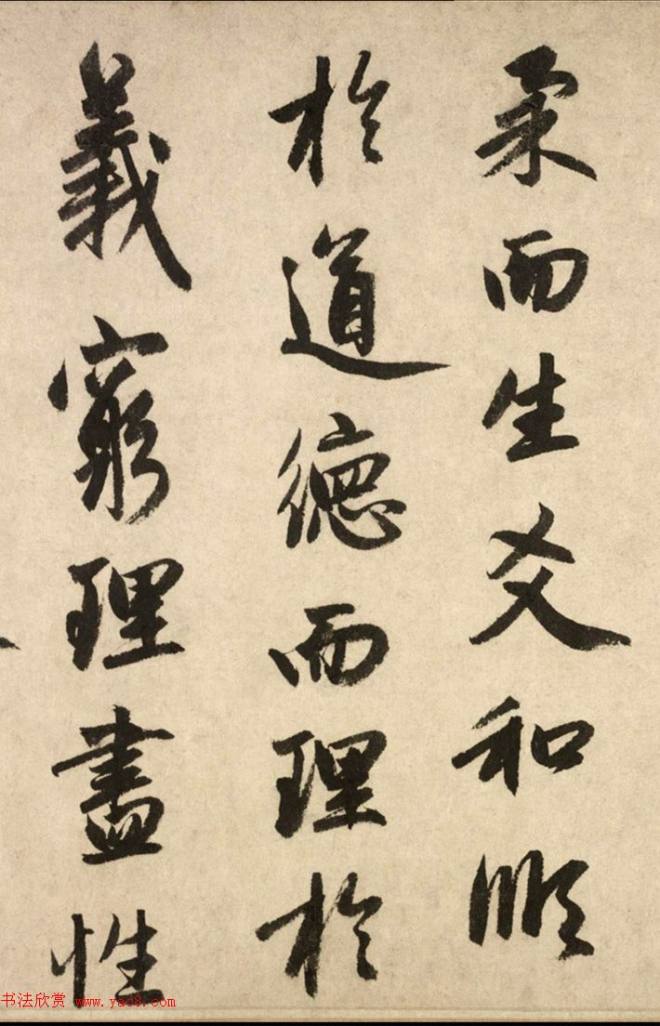 柔而生爻和順
於道德而理於
義窮理盡性
书法欣赏 www.yac8.com